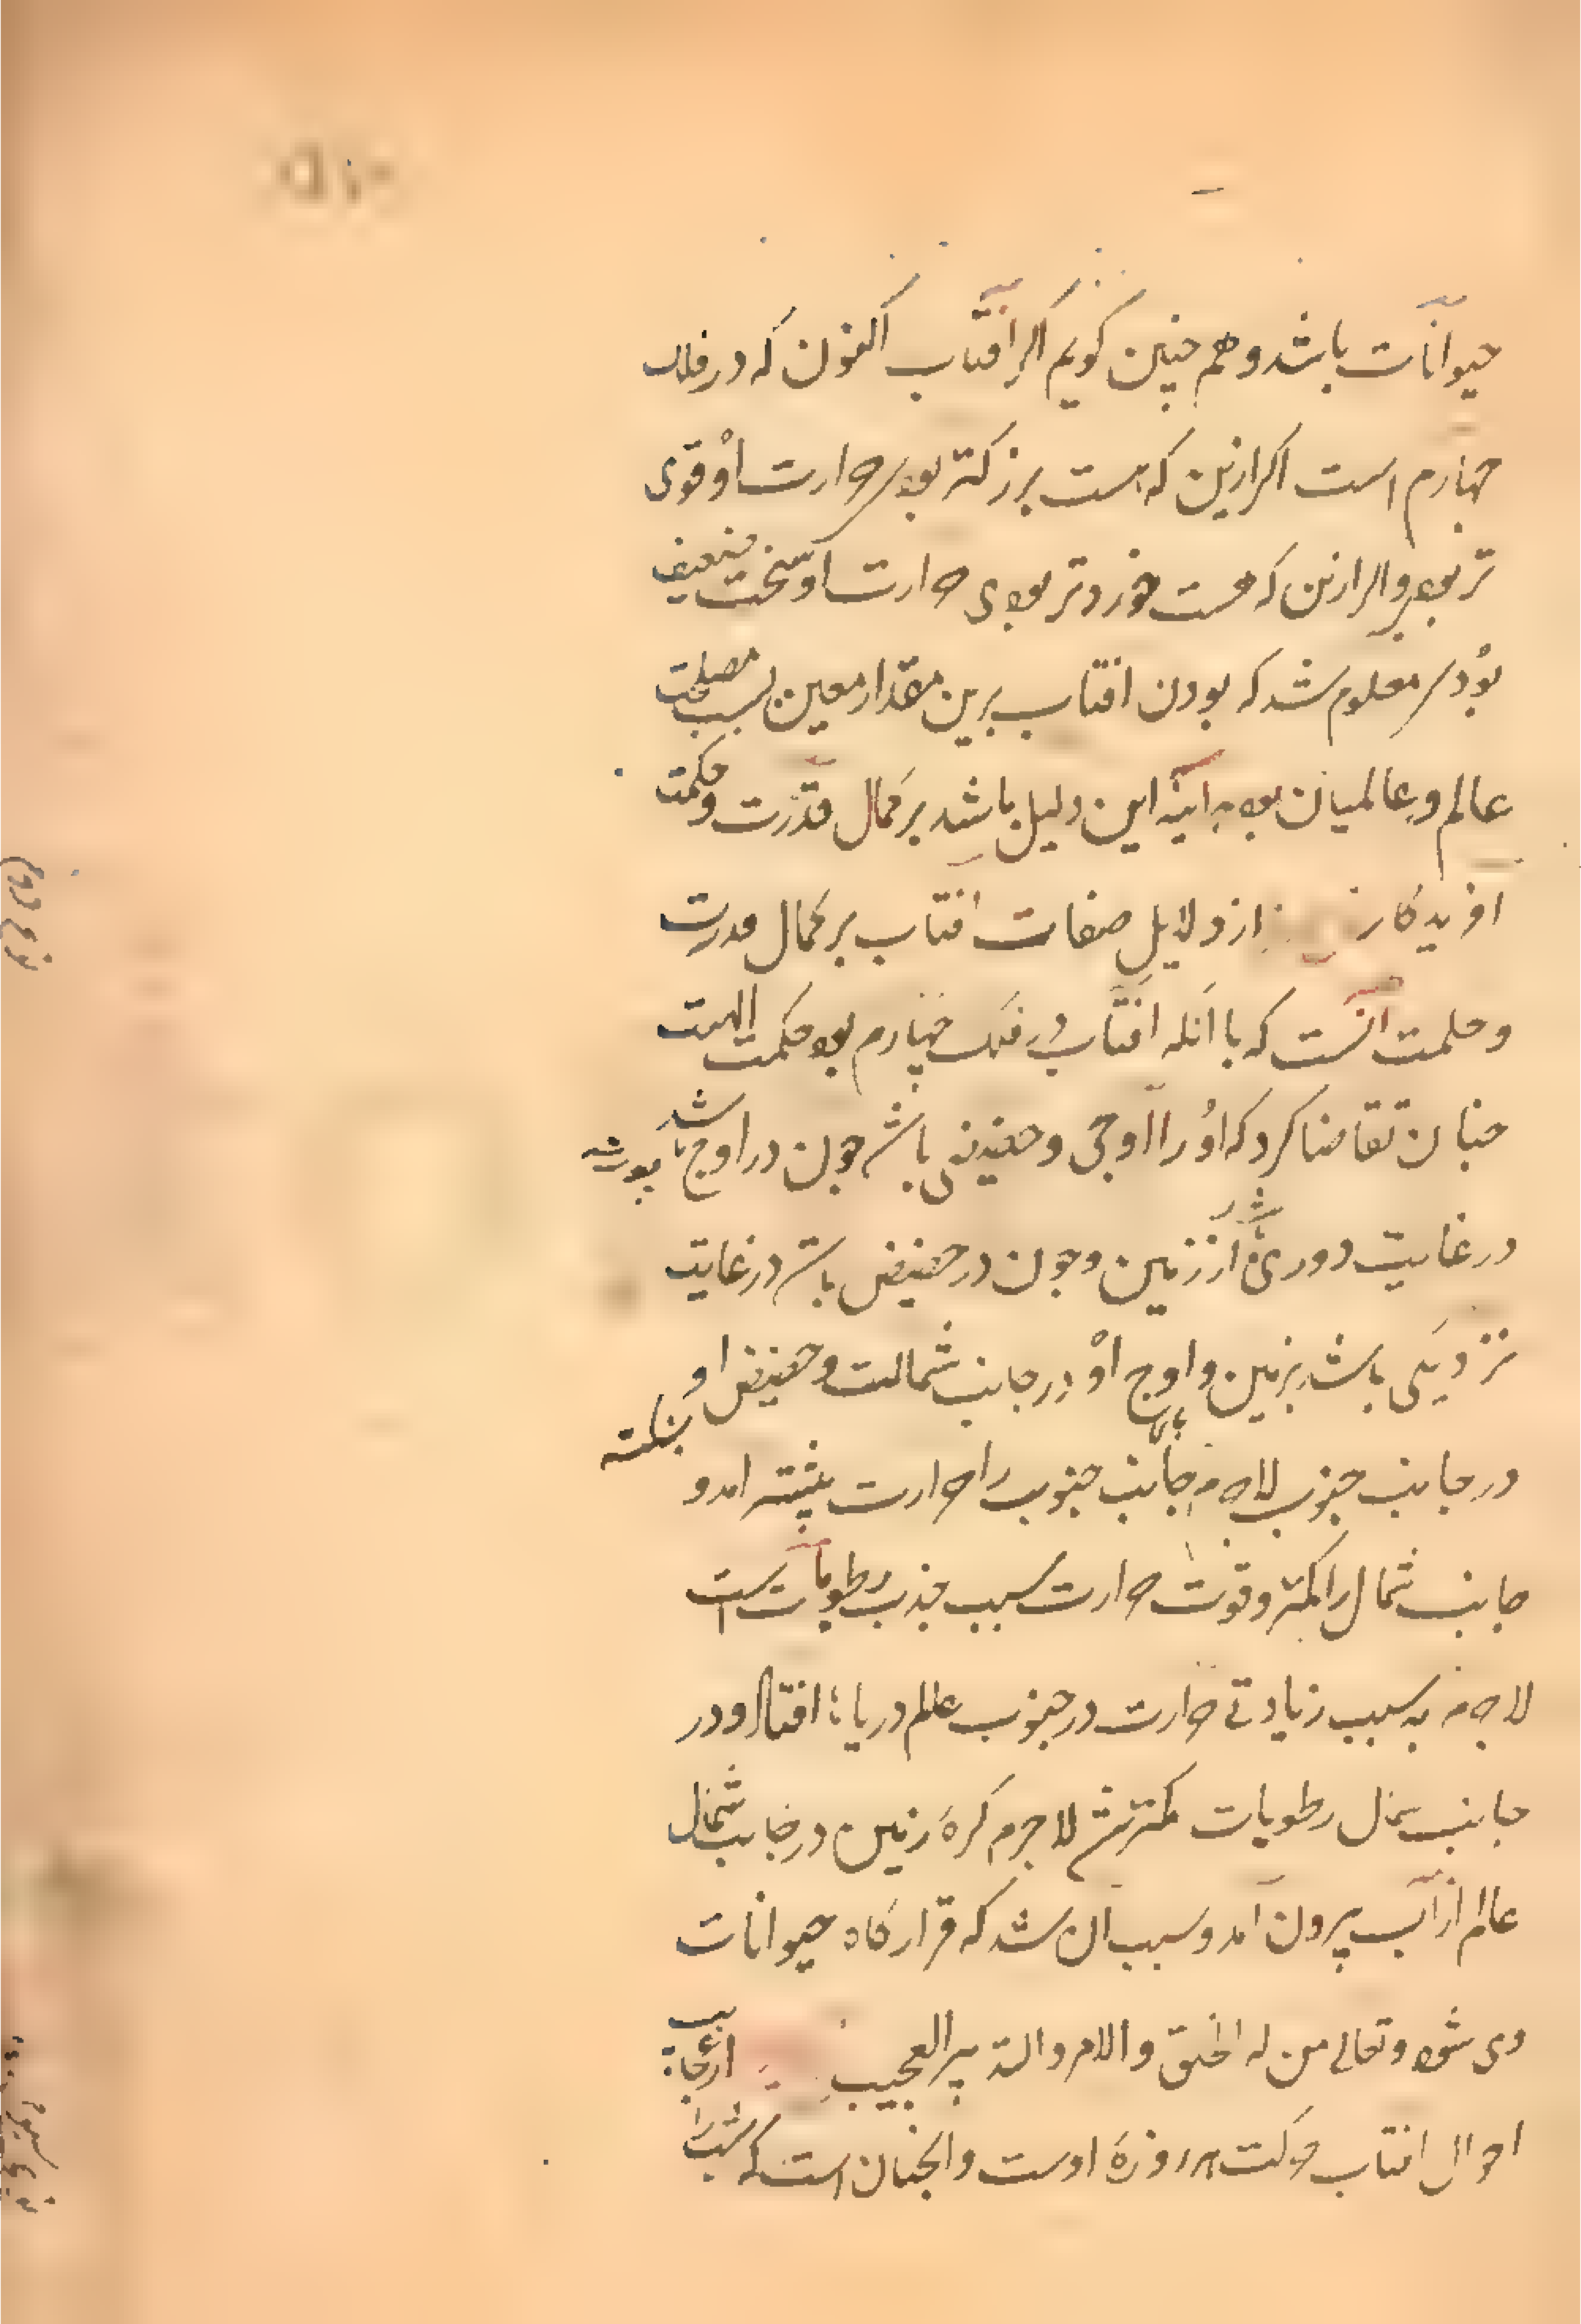 حیوانات باشد و هم چنین کویم اکر افتاب اکنون که در فلک
چهارم است اکر ازین که هست بزرکتر بودی حرارت او قوی
تر بودی و اکر ازین که هست خوردتر بودی حرارت او سخت ضعیف
بودی معلوم شد که بودن افتاب برین مقدار معین بسبب مصلحت
عالم و عالمیان بود هراینه این دلیل باشد بر کمال قدرت و حکمت
افریدکار از دلایل صفات افتاب بر کمال قدرت
و حکمت انست که با انکه افتاب در فلک چهارم بود حکمت الهیت
چنان تقاضا کرد که او را اوجی و حضیضی باشد چون در اوج باشد
در غایت دوری باشد از زمین و چون در حضیض باشد در غایت
نزدیکی باشد بزمین و اوج او در جانب شمالست و حضیض او
در جانب جنوب لاجرم جانب جنوب را حرارت بیشتر امد و
جانب شمال را کمتر و قوت حرارت سبب جذب رطوبات است
لاجرم به سبب زیادتی حرارت در جنوب عالم دریاها افتاد و در
جانب شمال رطوبات کمتر شد لاجرم کرهٔ زمین در جانب شمال
عالم از آب بیرون آمد و سبب آن شد که قرارکاه حیوانات
وی شود و تعالی من له الخلق والامر والتدبیر العجیب از عجایب
احوال افتاب حرکت هر روزهٔ اوست و انچنان است که شب را